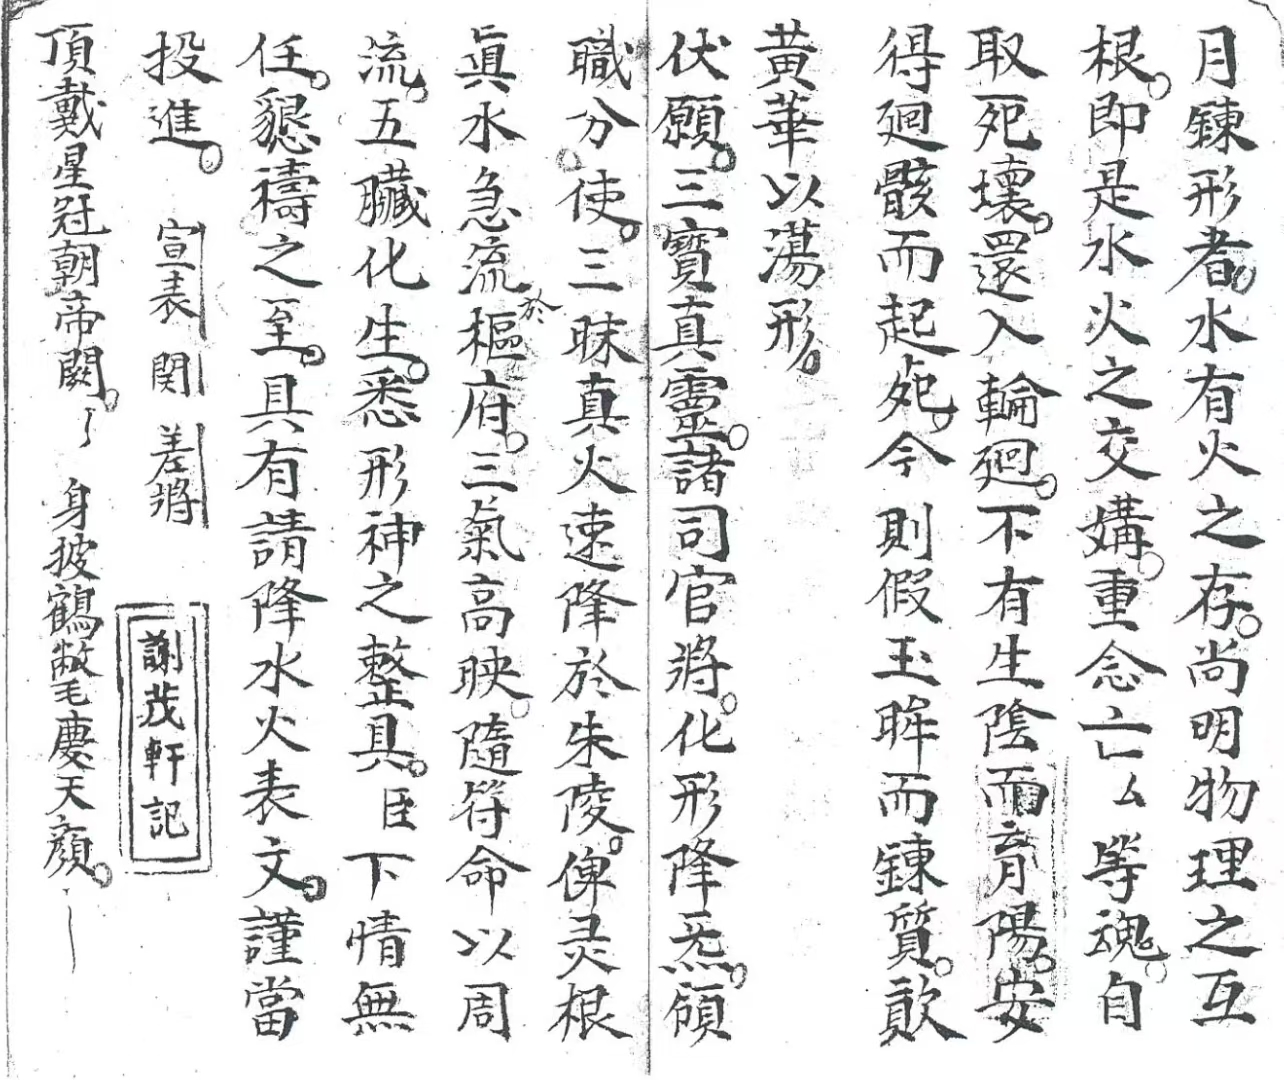 月鍊形者。水有火之存。尚明物理之互
根。即是水火之交媾。重念亡厶等魂。自
取死壞。還入輪廻。不有生陰而育陽。安
得廻骸而起死。今則假玉眸而鍊質。歘
黄華以蕩形。
伏願。三寶真靈。諸司官將。化形降炁。領
職分。使。三昧真火速降於朱陵。俾灵根
眞水急流於樞府。三氣高映。隨符命以周
流。五臟化生。悉形神之整具。臣下情無
任。懇禱之至。具有請降水火表文。謹當
投進。 宣表 関 差將
謝茂軒記
頂戴星冠朝帝闕。 身披鶴氅慶天顏。